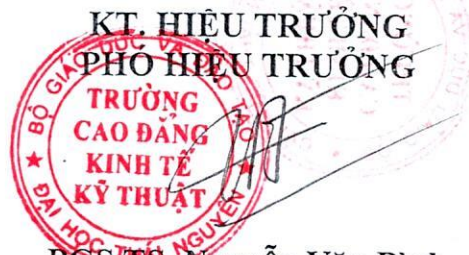 KT. HIỆU TRƯỞNG
PHÓ HIỆU TRƯỞNG
BỘ GIÁO DỤC VÀ ĐÀO TẠO
TRƯỜNG
CAO ĐẲNG
KINH TẾ
KỸ THUẬT
ĐẠI HỌC THÁI NGUYÊN
PGS.TS. Nguyễn Văn Bình